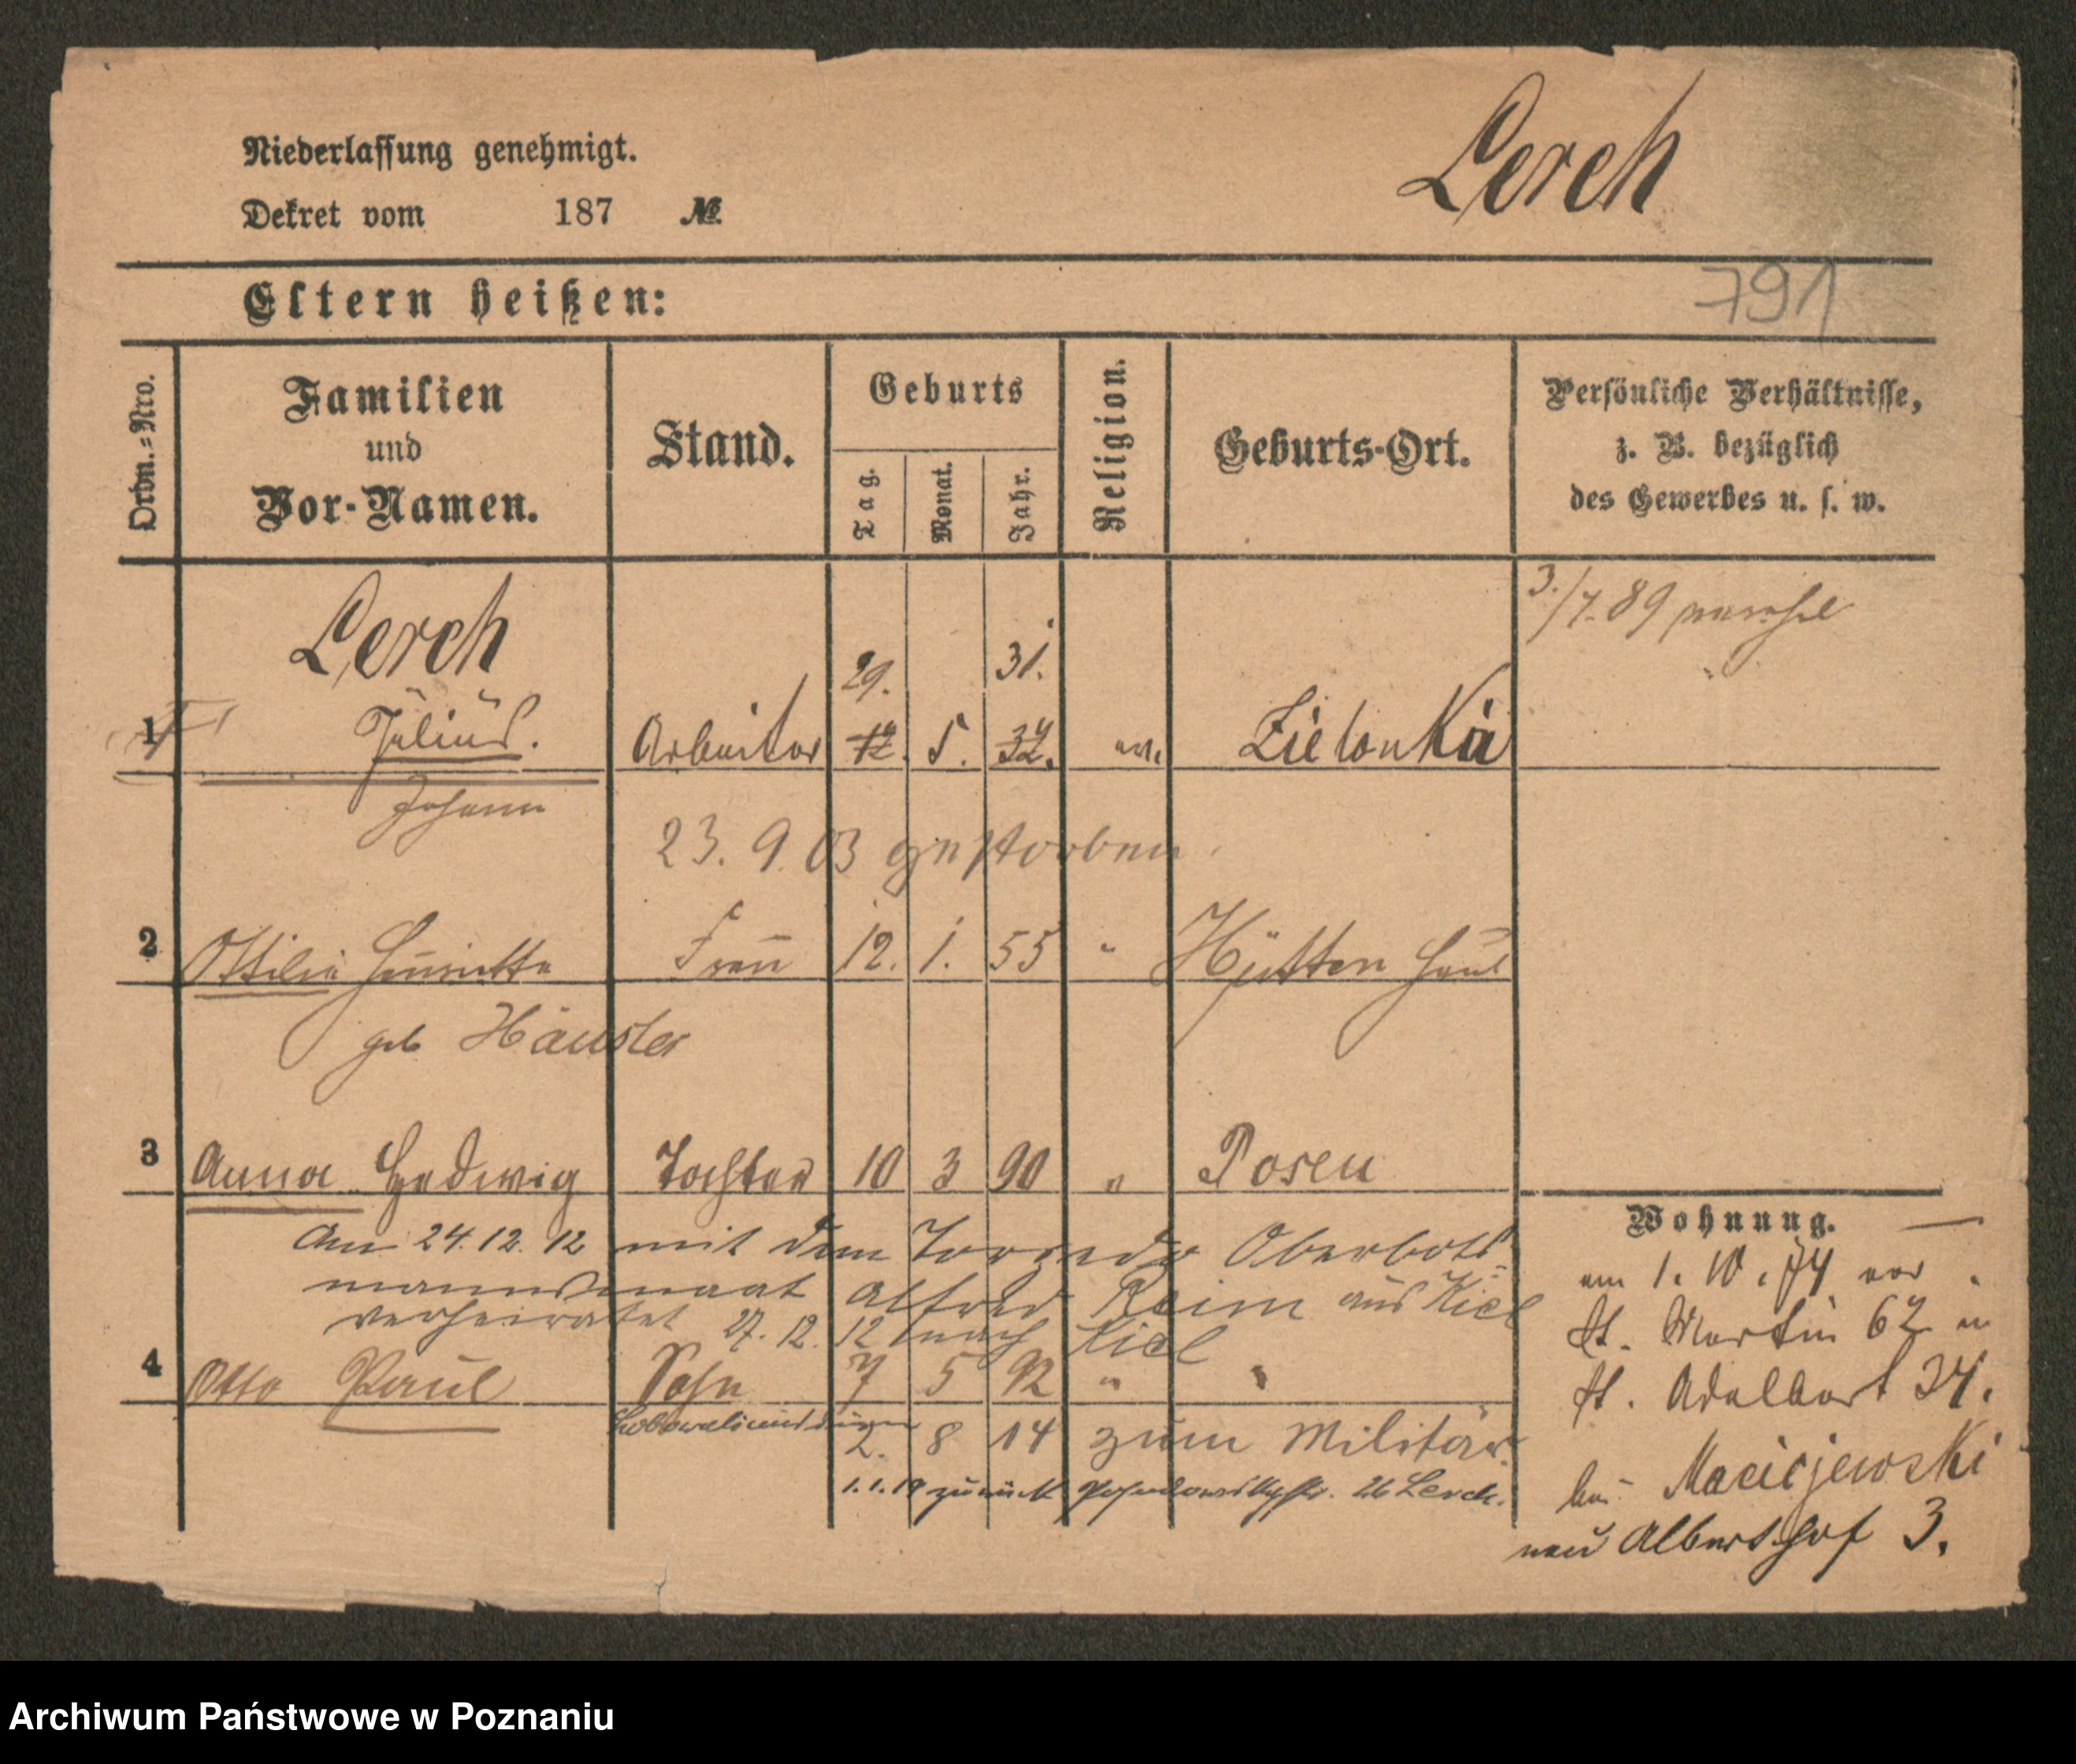 Niederlassung genehmigt.
Dekret vom 187 №
Lerch
Eltern heißen:
791
Ordn.=Nro.
Familien
und
Vor-Namen.
Stand.
Geburts
Tag.
Monat.
Jahr.
Religion.
Geburts-Ort.
Persönliche Verhältnisse,
z. B. bezüglich
des Gewerbes u. s. w.
3./7. 89
Lerch
29. 31.
1 Julius. Arbeiter 5. ev. Zielonka
Johann
23. 9. 03 gestorben.
2 Ottilie Henriette Frau 12. 1. 55 " Hütten Haul
geb Häusler
3 Anna Hedwig Tochter 10 3 90 " Posen
Am 24. 12. 12 mit dem Torpedo Oberbots-
mannsmaat Alfred Reim aus Kiel
verheiratet 27. 12. 12 nach Kiel
4 Otto Paul Sohn 7 5 92 " "
2. 8 14 zum Militär.
1. 1. 19 zurück 26 Lerch.
Wohnung.
am 1. 10. 74 vor
St. Martin 62 n
St. Adalbert 34.
bei Maciejewski
neu Albertshof 3.